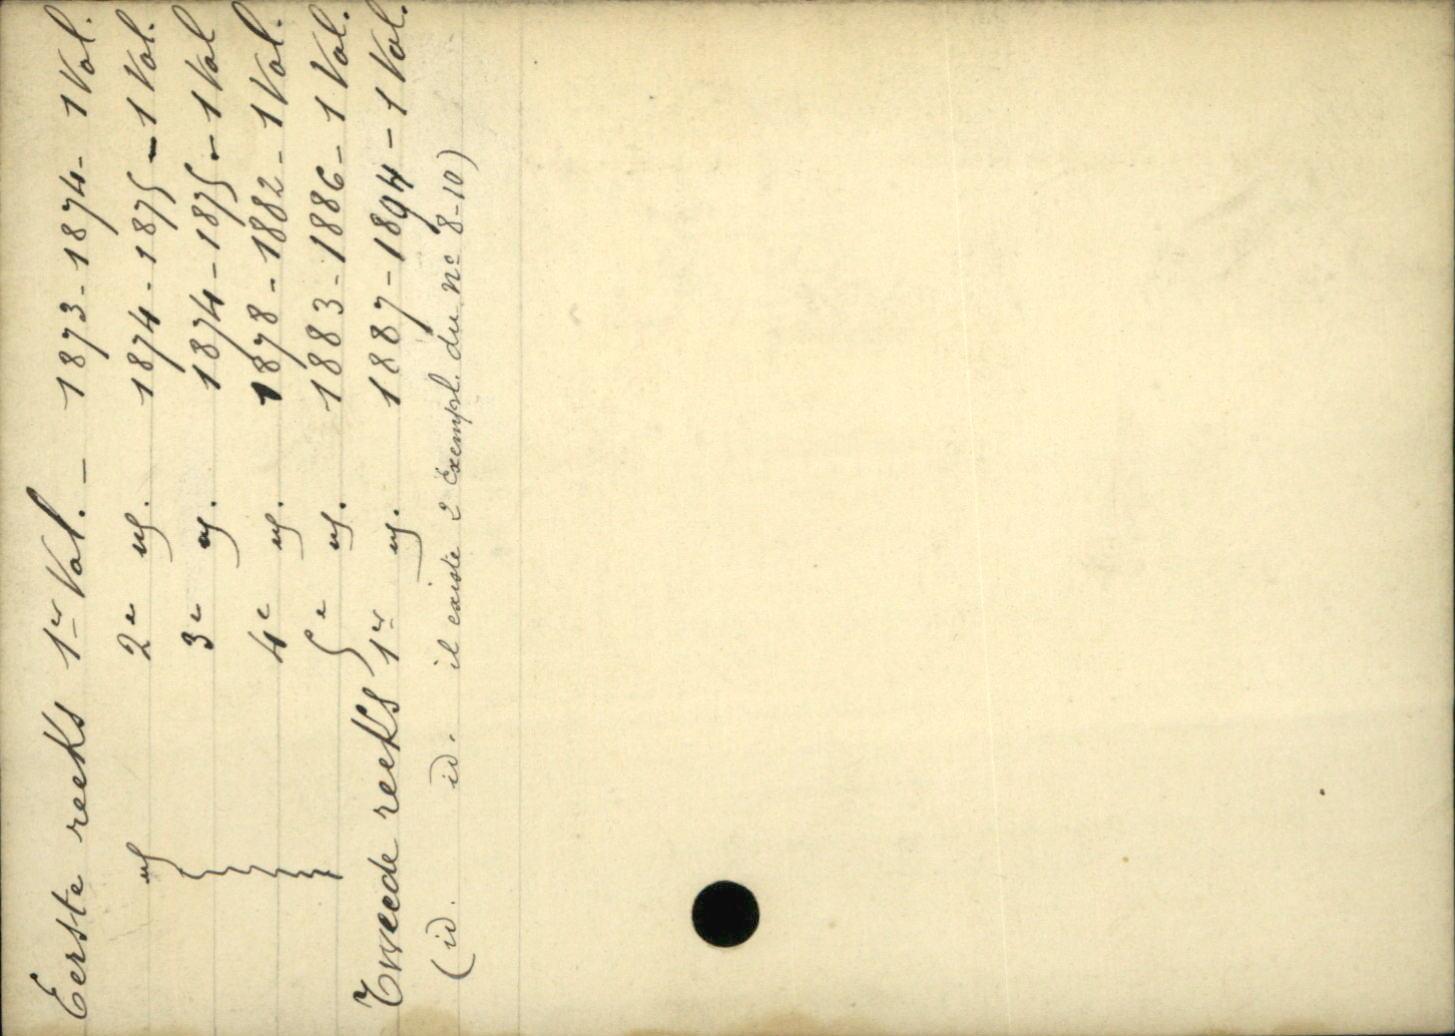 Eerste reeks 1er Vol. - 1873-1874- 1 Vol.
2e 1874-1875 - 1 Vol.
3e 1874-1875 - 1 Vol
4e 1878-1882 - 1 Vol.
5e 1883-1886 - 1 Vol.
Tweede reeks 1er 1887-1894 - 1 Vol.
(id. id. il existe 2 exempl. du no 8-10)